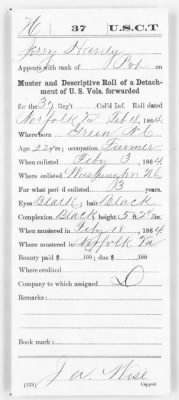 H 37 U.S.C.T
Jerry Hardy
Appears with rank of Pvt on
Muster and Descriptive Roll of a Detach-
ment of U. S. Vols. forwarded
for the 37 Reg't Col'd Inf. Roll dated
Norfolk Va Feb 18, 1864.
Where born Green N.C
Age 22 y'rs; occupation Farmer
When enlisted Feby 3, 1864
Where enlisted Washington NC
For what period enlisted 3 years.
Eyes Black; hair Black
Complexion Black; height 5 ft. 2 in.
When mustered in Feby 18, 1864
Where mustered in Norfolk Va
Bounty paid $ 100; due $ 100
Where credited
Company to which assigned D
Remarks:
Book mark:
J W. Wise
(339) Copyist